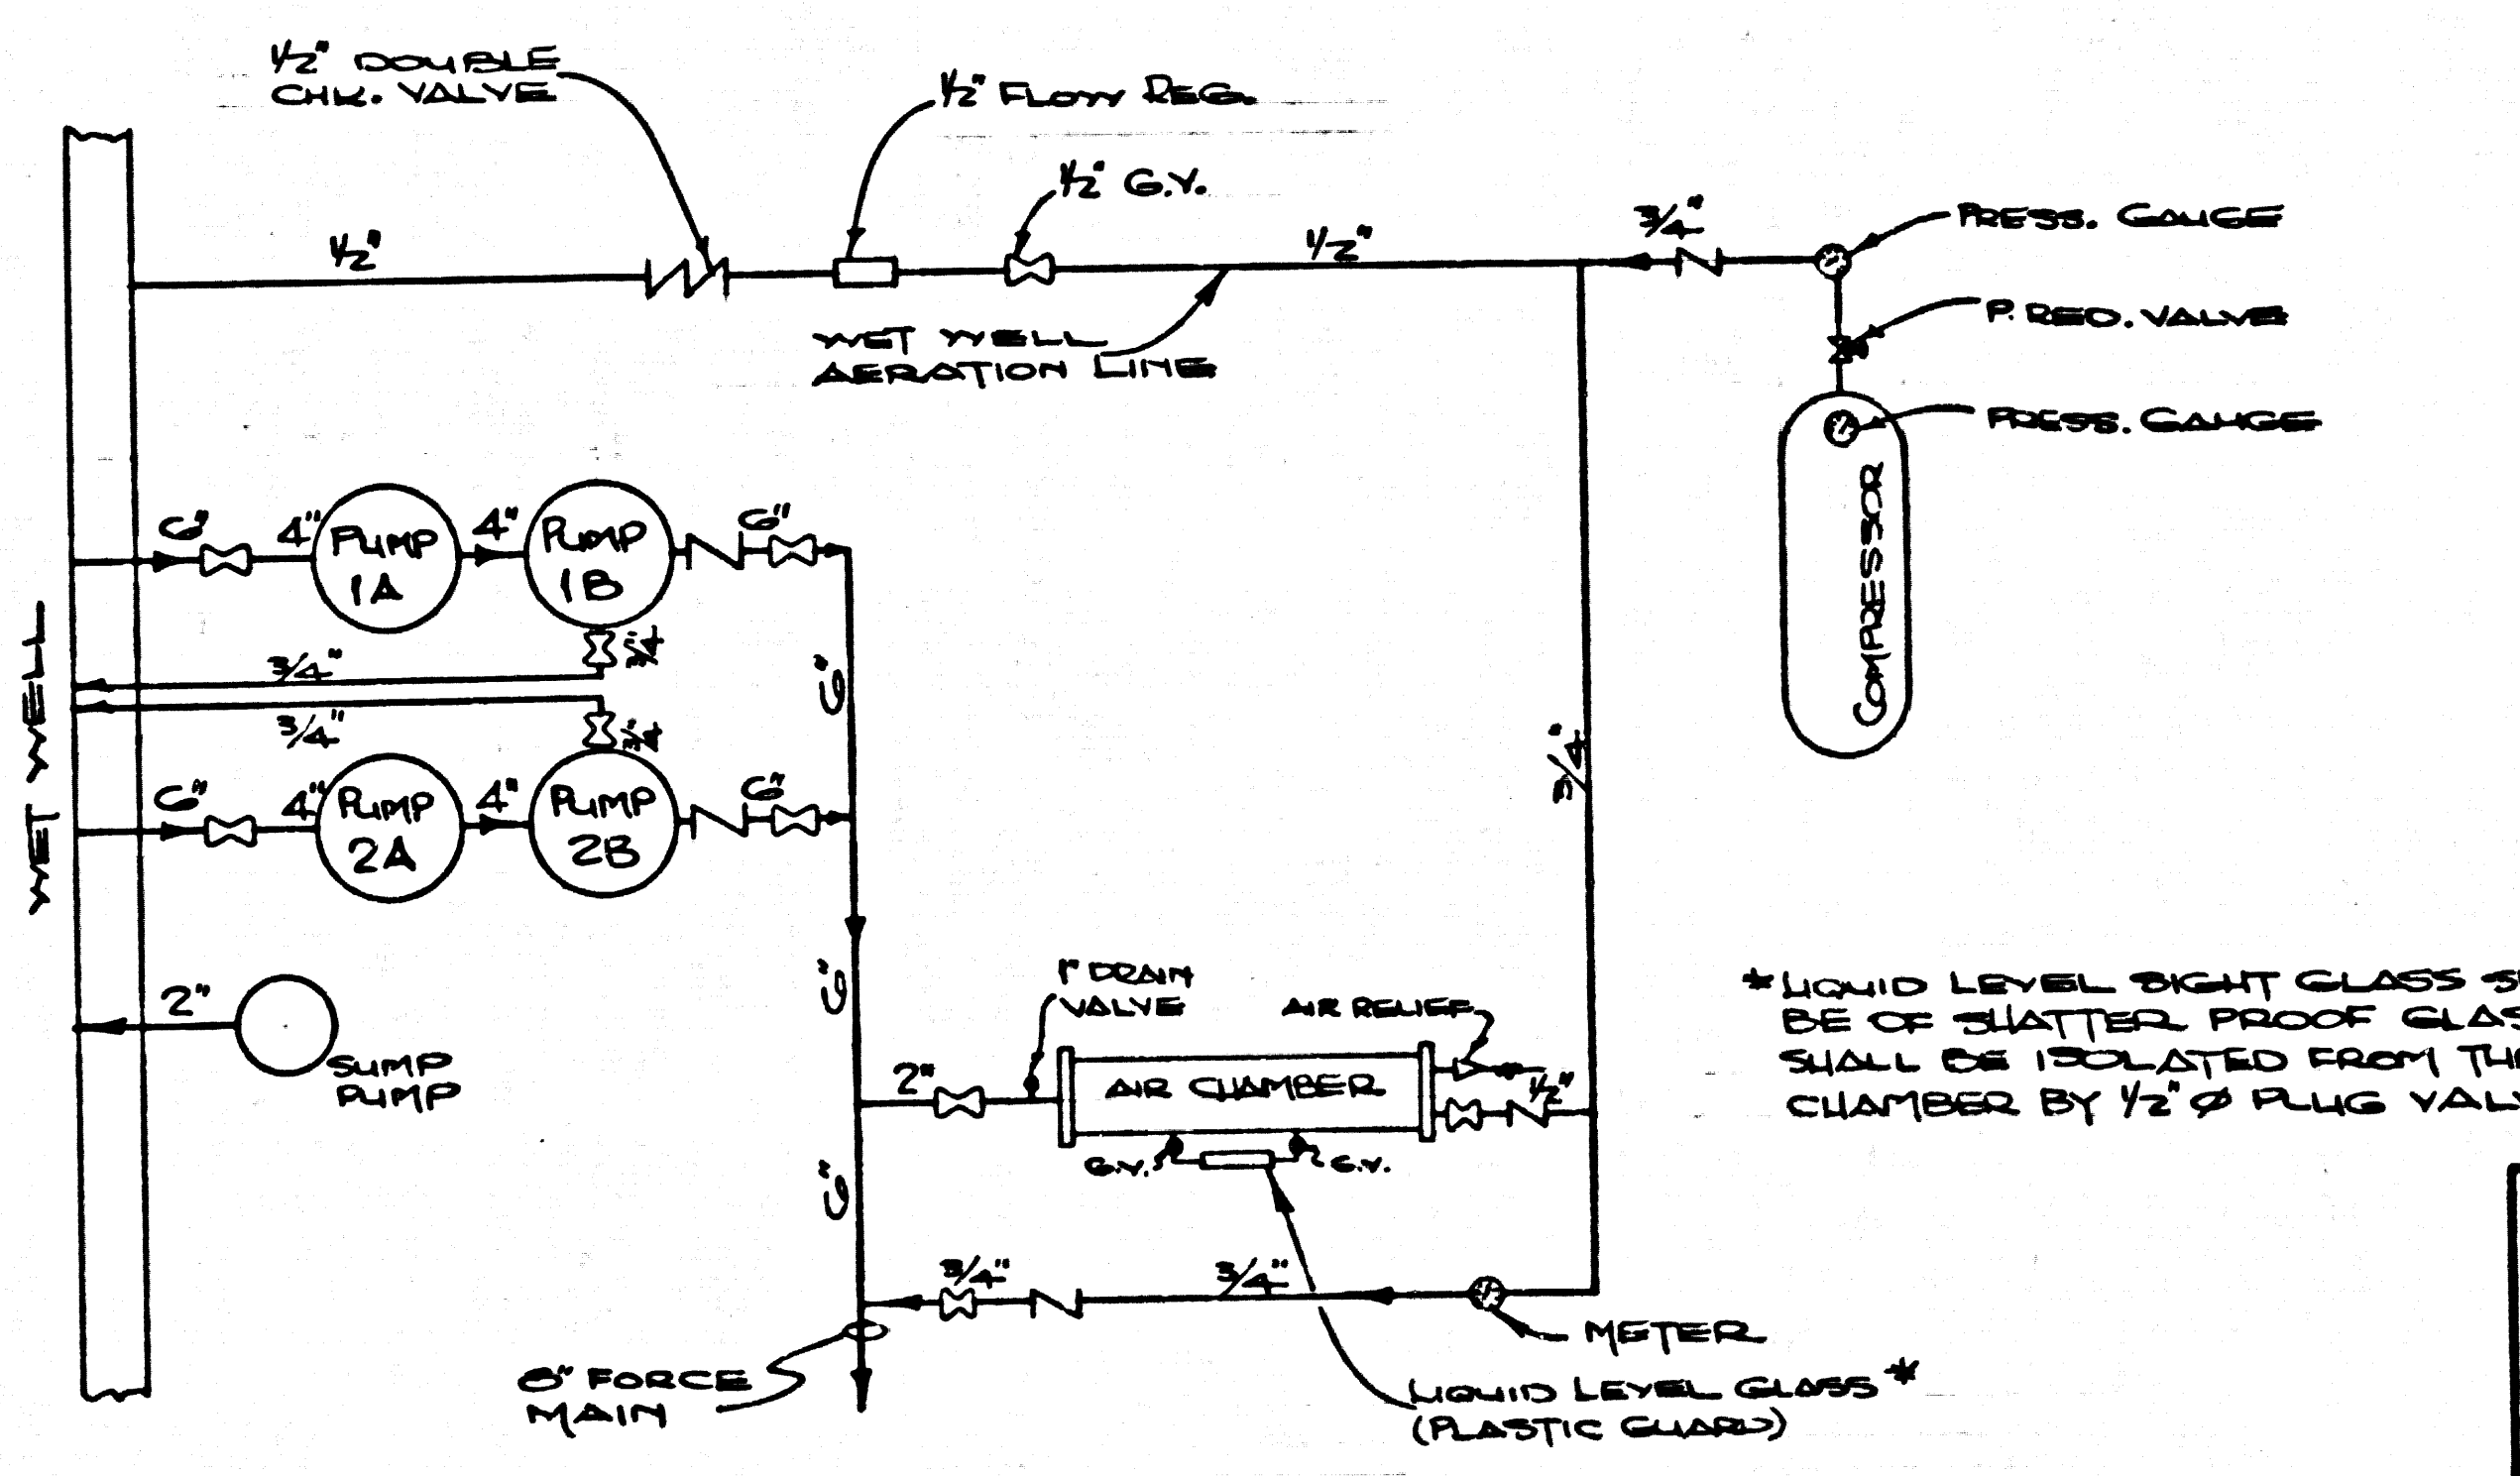 1/2" DOUBLE
CHK. VALVE
1/2" FLOW REG.
1/2" G.V.
1/2"
1/2"
3/4"
PRESS. GAUGE
P. RED. VALVE
PRESS. GAUGE
WET WELL
AERATION LINE
COMPRESSOR
6"
4"
PUMP
1A
4"
PUMP
1B
6"
3/4"
3/4"
6"
WET WELL
6"
4"
PUMP
2A
4"
PUMP
2B
6"
3/4"
2"
SUMP
PUMP
6"
1" DRAIN
VALVE
AIR RELIEF
2"
AIR CHAMBER
1/2"
G.V.
G.V.
6"
3/4"
3/4"
METER
FORCE
MAIN
LIQUID LEVEL GLASS *
(PLASTIC GUARD)
* LIQUID LEVEL SIGHT GLASS
BE OF SHATTER PROOF
SHALL BE ISOLATED FROM
CHAMBER BY 1/2" Ø PLUG